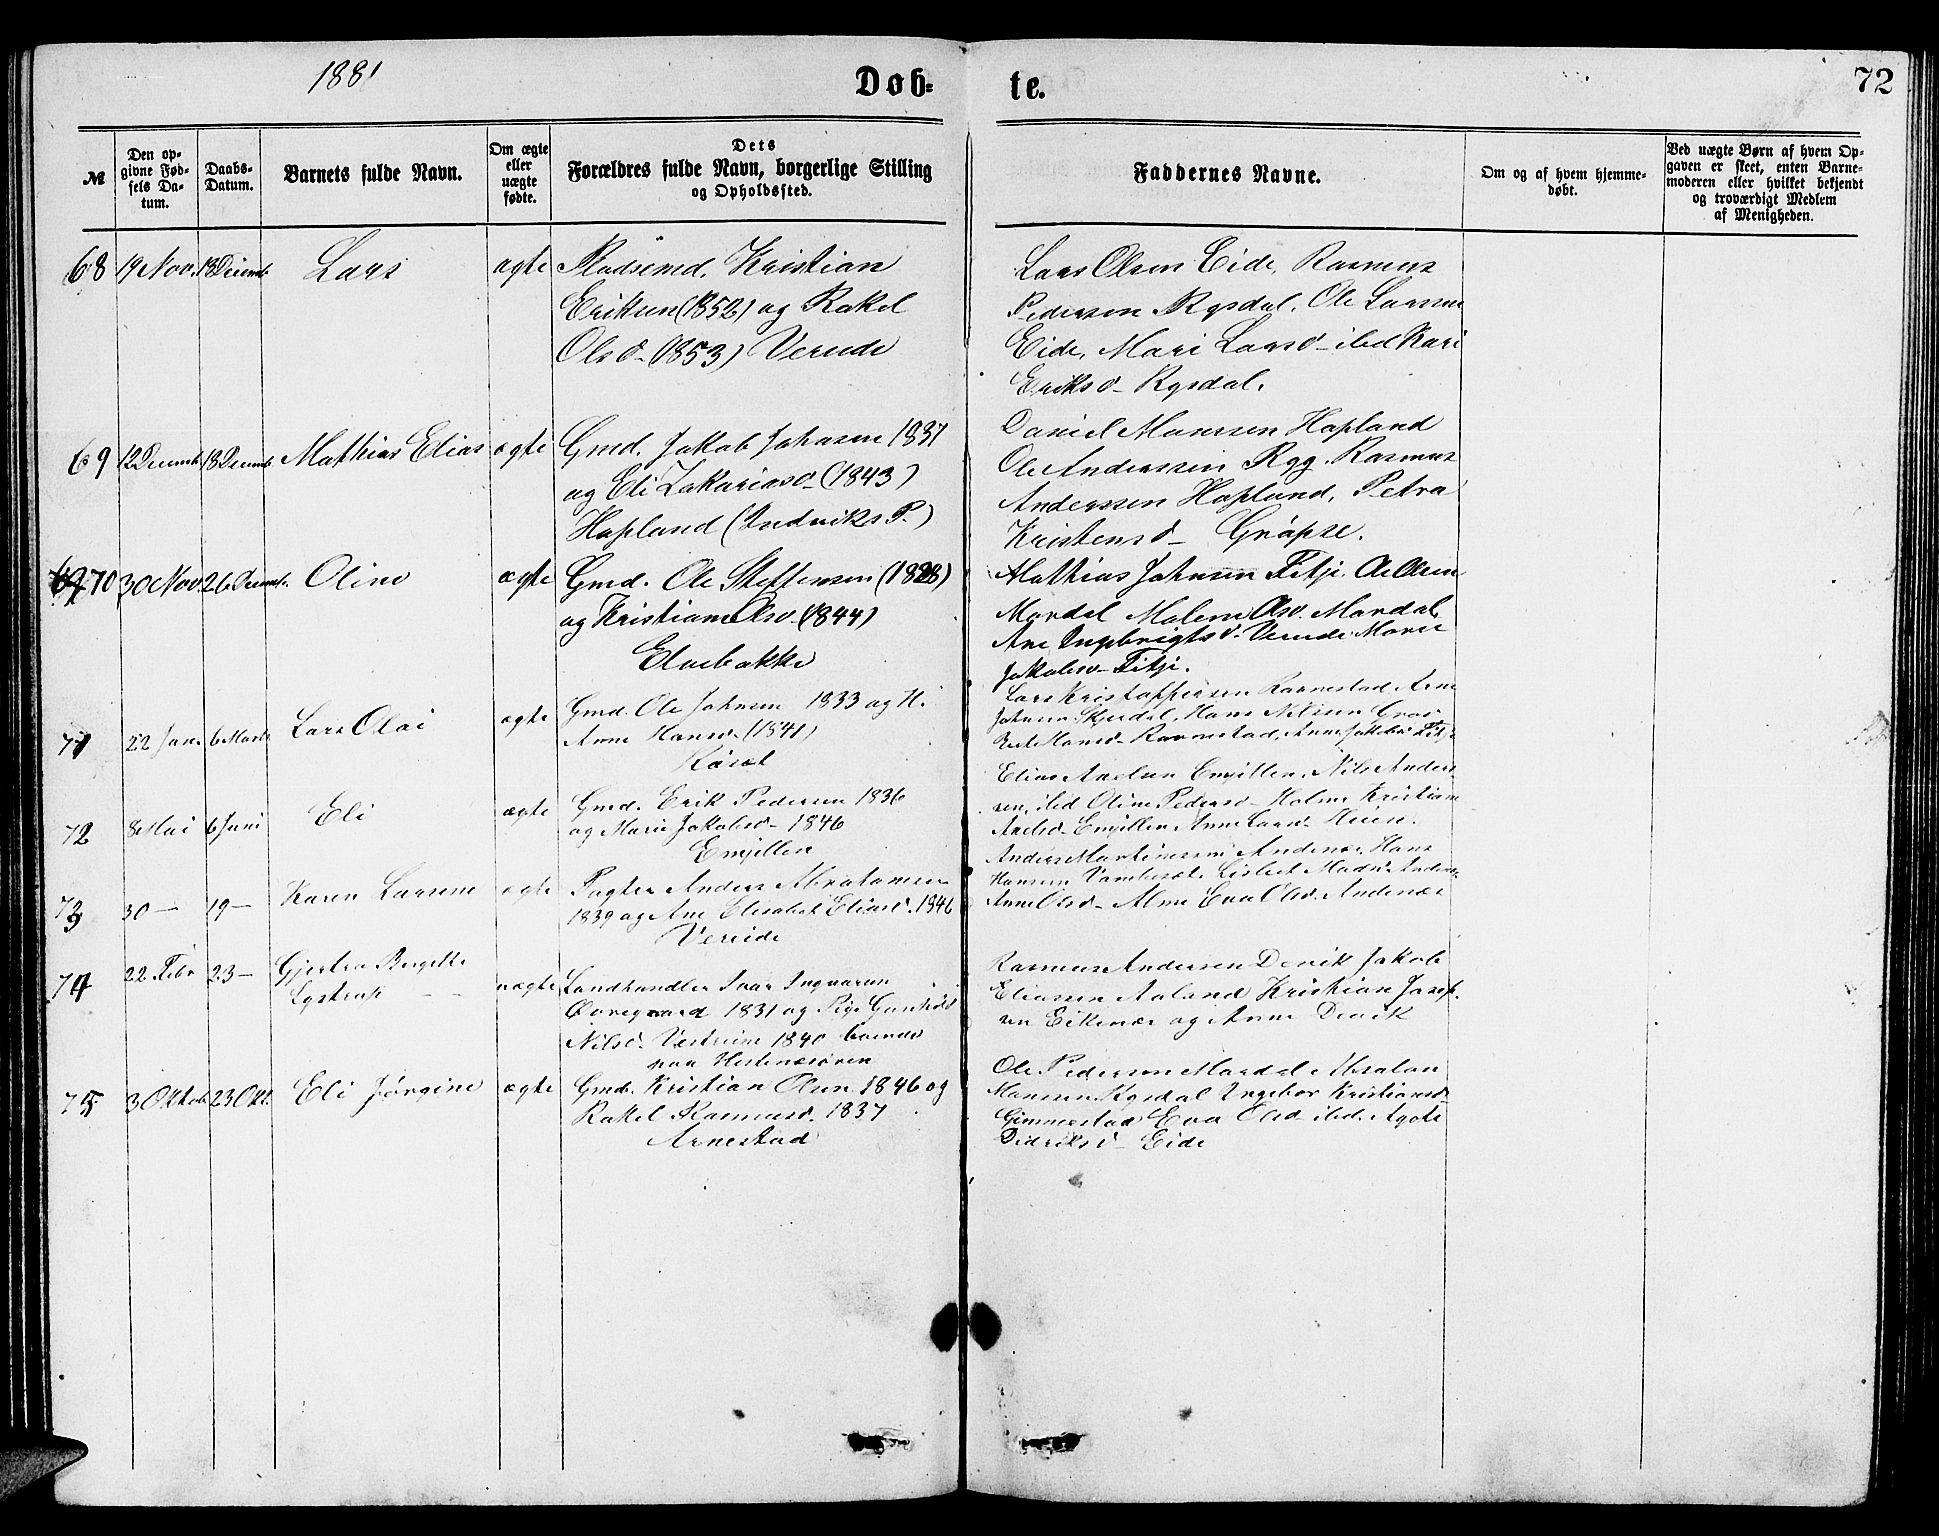 1881
Døb-
te.
72
№
Den op-
givne Fød-
sels Da-
tum.
Daabs-
Datum.
Barnets fulde Navn.
Om ægte
eller
uægte
fødte.
Dets
Forældres fulde Navn, borgerlige Stilling
og Opholdssted.
Faddernes Navne.
Om og af hvem hjemme-
døbt.
Ved uægte Børn af hvem Op-
gaven er skeet, enten Barne-
moderen eller hvilket bekjendt
og troværdigt Medlem
af Menigheden.
68 19 Nov. 18 Decemb Lars ægte Pladsmd. Kristian
Eriksen (1852) og Rakel
Olsd. (1853) Vereide
Lars Olsen Eide, Rasmus
Pedersen Rysdal. Ole Larsen
Eide, Mari Larsd. ibd Kari
Eriksd. Rysdal.
69 12 Decemb. 18 Decemb Mathias Elias ægte Gmd. Jakob Johnsen 1837
og Eli Zakariasd. (1843)
Hopland (Indviks P.)
Daniel Monssen Hopland
Ole Anderssen Rygg. Rasmus
Anderssen Hopland, Petra
Kristensd.
70 30 Nov. 26 Decemb. Oline ægte Gmd. Ole Steffensen (1828)
og Kristiane Olsd. (1844)
Elvebakke
Mathias Johnsen Fitje. Ole Olsen
Mardal Malene Olsd. Mardal,
Ane Ingebrigtsd. Vereide Marie
Jakobsd. Fitje.
71 22 Jan. 6 Marts Lars Olai ægte Gmd. Ole Johnsen 1833 og H.
Anne Hansd. (1841)
Lars Kristoffersen Ravnestad Arne
Johnsen Hans Nilsen
Hansd. Ravnestad, Anne Jakobsd Fitje
72 8 Mai 6 Juni Eli ægte Gmd. Erik Pedersen 1836
og Marie Jakobsd. 1846
Emjellen
Elias Axelsen Emjellen, Nils Anders-
sen, ibd Oline Pedersd. Holme Kristiane
Axelsd. Emjellen Anne Larsd.
73 30 — 19 — Karen Laurene ægte Pagter Anders Abrahamsen
1839 og Ane Elisabet Eliasd. 1846
Vereide
Anders Martinussen Andenæs Hans
Hansen Lisbet Madsd Andenæs
Anne Olsd. Eva Olsd. Andenæs
74 22 Febr 23 — Gjertra Bergitte
uægte Landhandler Ivar Ingvarsen
1831 og Pige Gunhild
Nilsd. 1840 boende
paa Hestenæsøren
Rasmus Andersen Devik Jakob
Eliassen Aaland Kristian Josef-
sen Eikenæs og Anne Devik
75 3 Oktob 23 Okt. Eli Jørgine ægte Gmd. Kristian Olsen 1846 og
Rakel Rasmusd. 1837
Arnestad
Ole Pedersen Mardal Absalon
Monsen Rysdal Ingebor Kristiansd.
Gimmestad Eva Olsd. ibd. Agote
Didriksd. Eide